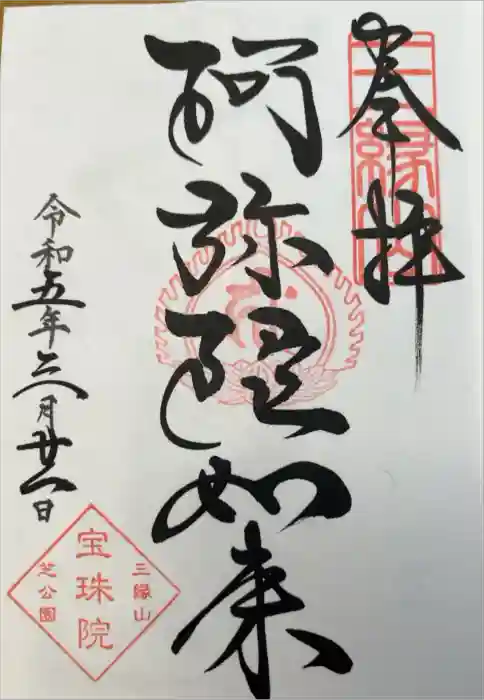 奉拝
三縁山
阿弥陀如来
令和五年六月廿一日
三縁山
宝珠院
芝公園